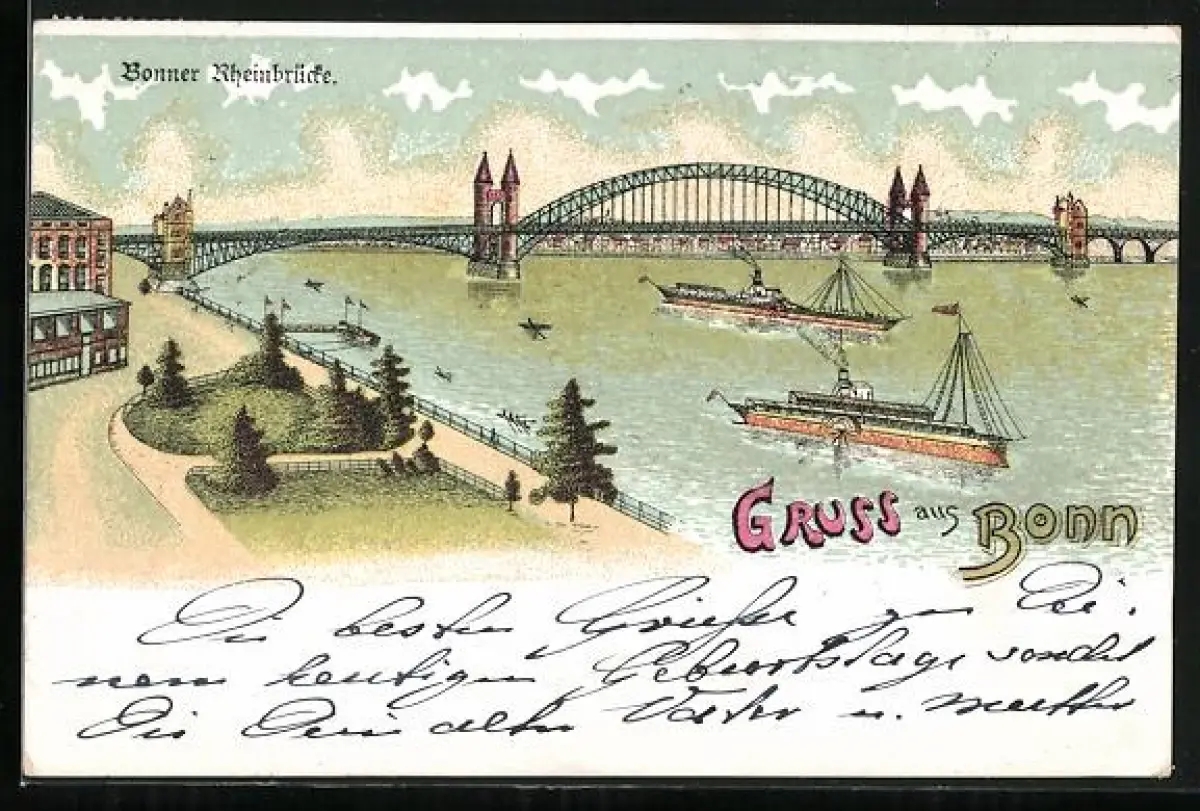 Bonner Rheinbrücke.
GRUSS aus BONN
Die besten Grüße zu Dei-
nem heutigen Geburtstage sendet
Dir Dein alter Vater u. Mutter